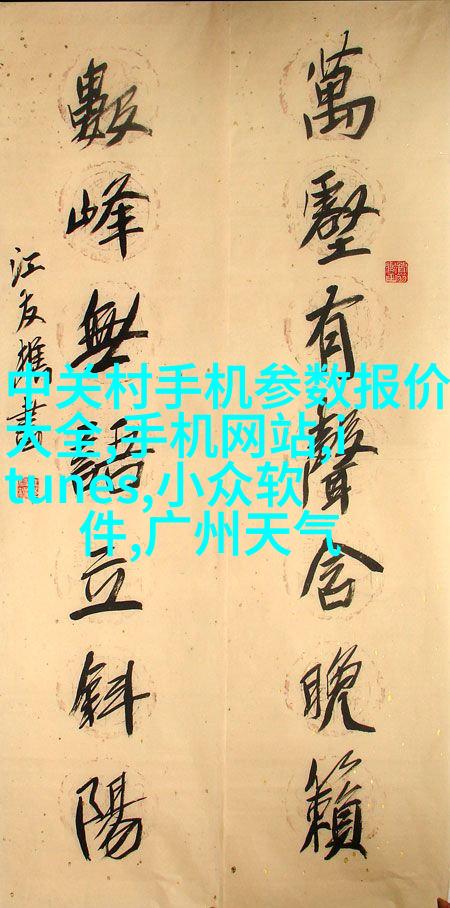 萬壑有聲含晚籟
數峰無語立斜陽
江友樵書
中关村手机参数报价
大全,手机网站,i
tunes,小众软
件,广州天气